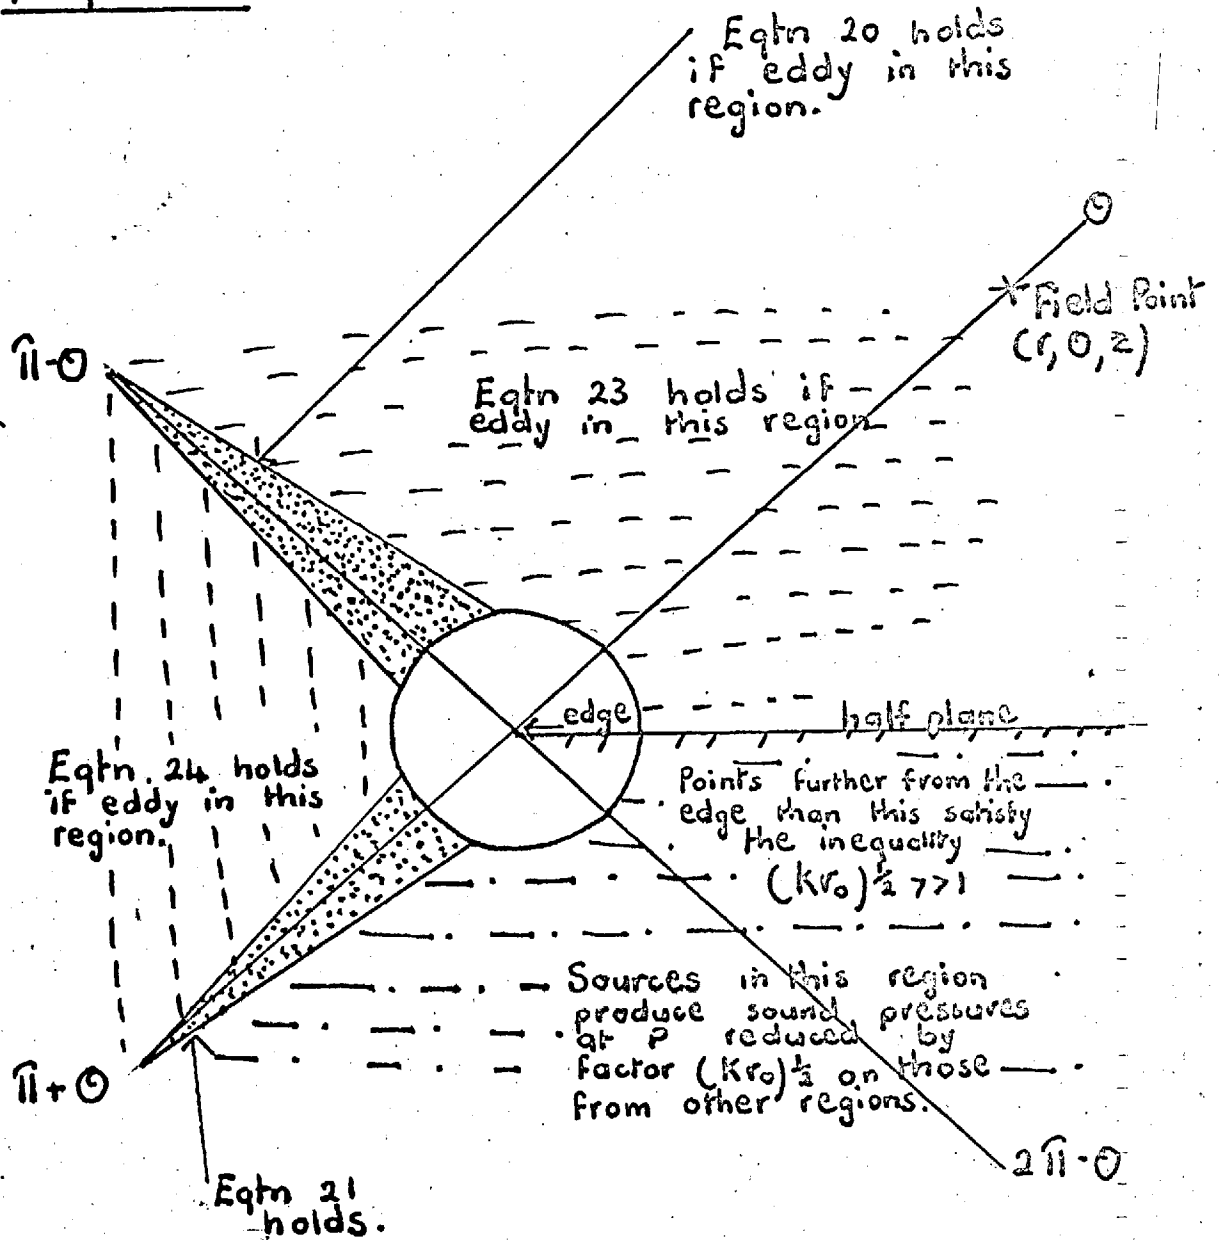 Eqtn 20 holds
if eddy in this
region.
θ
Field Point
(r, θ, z)
π-θ
Eqtn 23 holds if
eddy in this region
edge
half plane
Eqtn. 24 holds
if eddy in this
region.
Points further from the
edge than this satisfy
the inequality
(kr₀)½ >>1
Sources in this region
produce sound pressures
at P reduced by
factor (kr₀)½ on those
from other regions.
π+θ
2π-θ
Eqtn 21
holds.